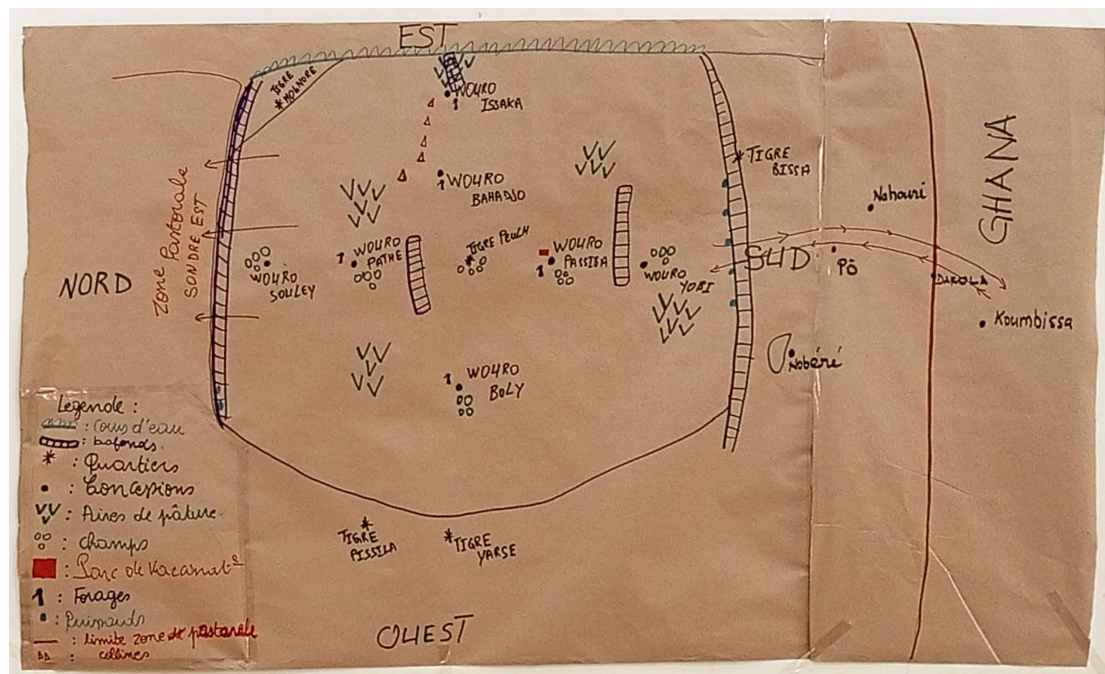 EST
TIGRE
MOGNORE
WOURO
ISSAKA
WOURO
BAHADJO
TIGRE
BISSA
Nahouri
GHANA
Zone Pastorale
SONDRE EST
NORD
WOURO
SOULEY
WOURO
PATHE
TIGRE PEULH
WOURO
PASSIBA
WOURO
YOBI
SUD
Pô
DAKOLA
Koumbissa
Nobéré
WOURO
BOLY
TIGRE
PISSILA
TIGRE
YARSE
OUEST
Légende :
: Cours d'eau
: bafonds
: Quartiers
: Concessions
: Aires de pâture
: champs
: Parc de Vaccinat°
: Forages
: Puisards
: limite zone de pastorale
: collines